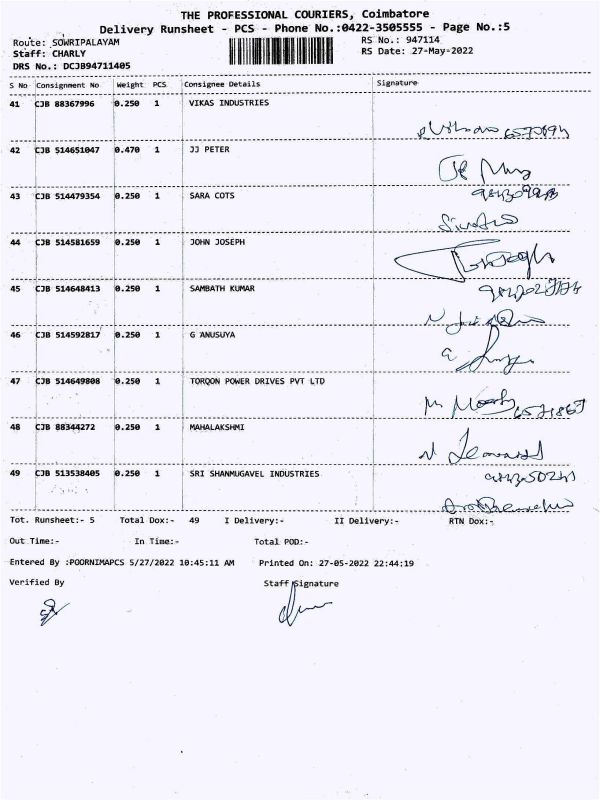 THE PROFESSIONAL COURIERS, Coimbatore
Delivery Runsheet - PCS - Phone No.:0422-3505555 - Page No.:5
Route: SOWRIPALAYAM RS No.: 947114
Staff: CHARLY RS Date: 27-May-2022
DRS No.: DCJB94711405
S No Consignment No Weight PCS Consignee Details Signature
41 CJB 88367996 0.250 1 VIKAS INDUSTRIES
42 CJB 514651047 0.470 1 JJ PETER
43 CJB 514479354 0.250 1 SARA COTS
44 CJB 514581659 0.250 1 JOHN JOSEPH
45 CJB 514648413 0.250 1 SAMBATH KUMAR
46 CJB 514592817 0.250 1 G ANUSUYA
47 CJB 514649808 0.250 1 TORQON POWER DRIVES PVT LTD
48 CJB 88344272 0.250 1 MAHALAKSHMI
49 CJB 513538405 0.250 1 SRI SHANMUGAVEL INDUSTRIES
Tot. Runsheet:- 5 Total Dox:- 49 I Delivery:- II Delivery:- RTN Dox:-
Out Time:- In Time:- Total POD:-
Entered By :POORNIMAPCS 5/27/2022 10:45:11 AM Printed On: 27-05-2022 22:44:19
Verified By Staff Signature